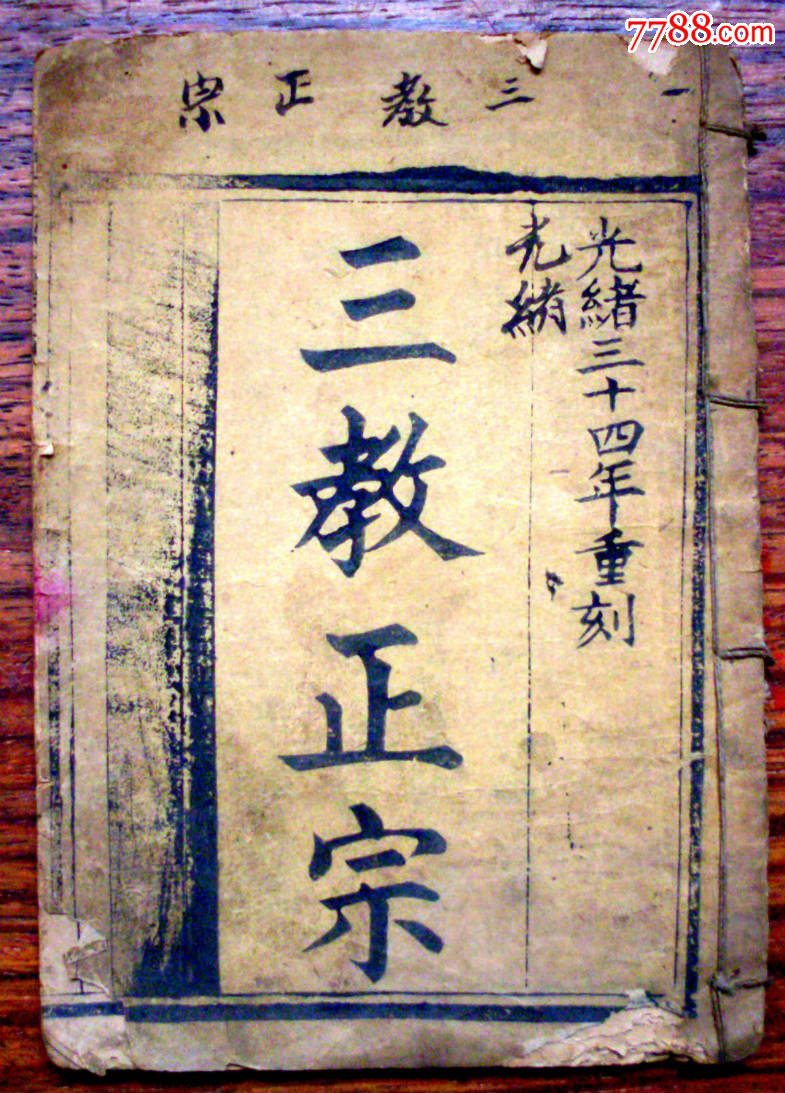 7788.com
一三教正宗
光緒三十四年重刻
光緒
三教正宗